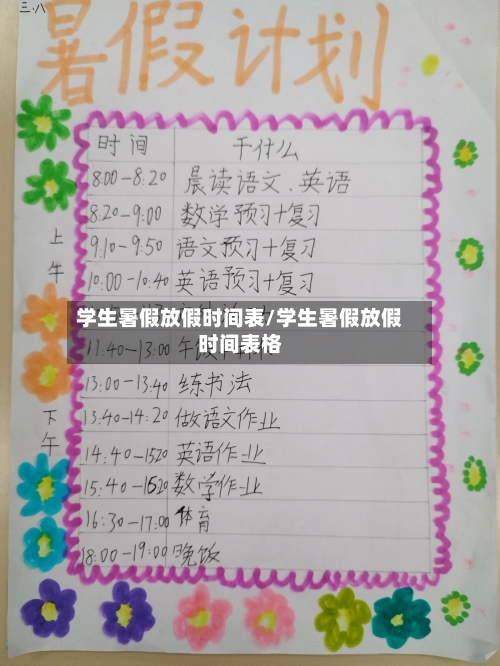 三.八
暑假计划
时间 干什么
上午
8:00-8:20 晨读语文、英语
8:20-9:00 数学预习+复习
9:10-9:50 语文预习+复习
10:00-10:40 英语预习+复习
学生暑假放假时间表/学生暑假放假
时间表格
11:40-13:00 午
下午
13:00-13:40 练书法
13:40-14:20 做语文作业
14:40-1520 英语作业
15:40-1620 数学作业
16:30-17:00 体育
18:00-19:00 晚饭